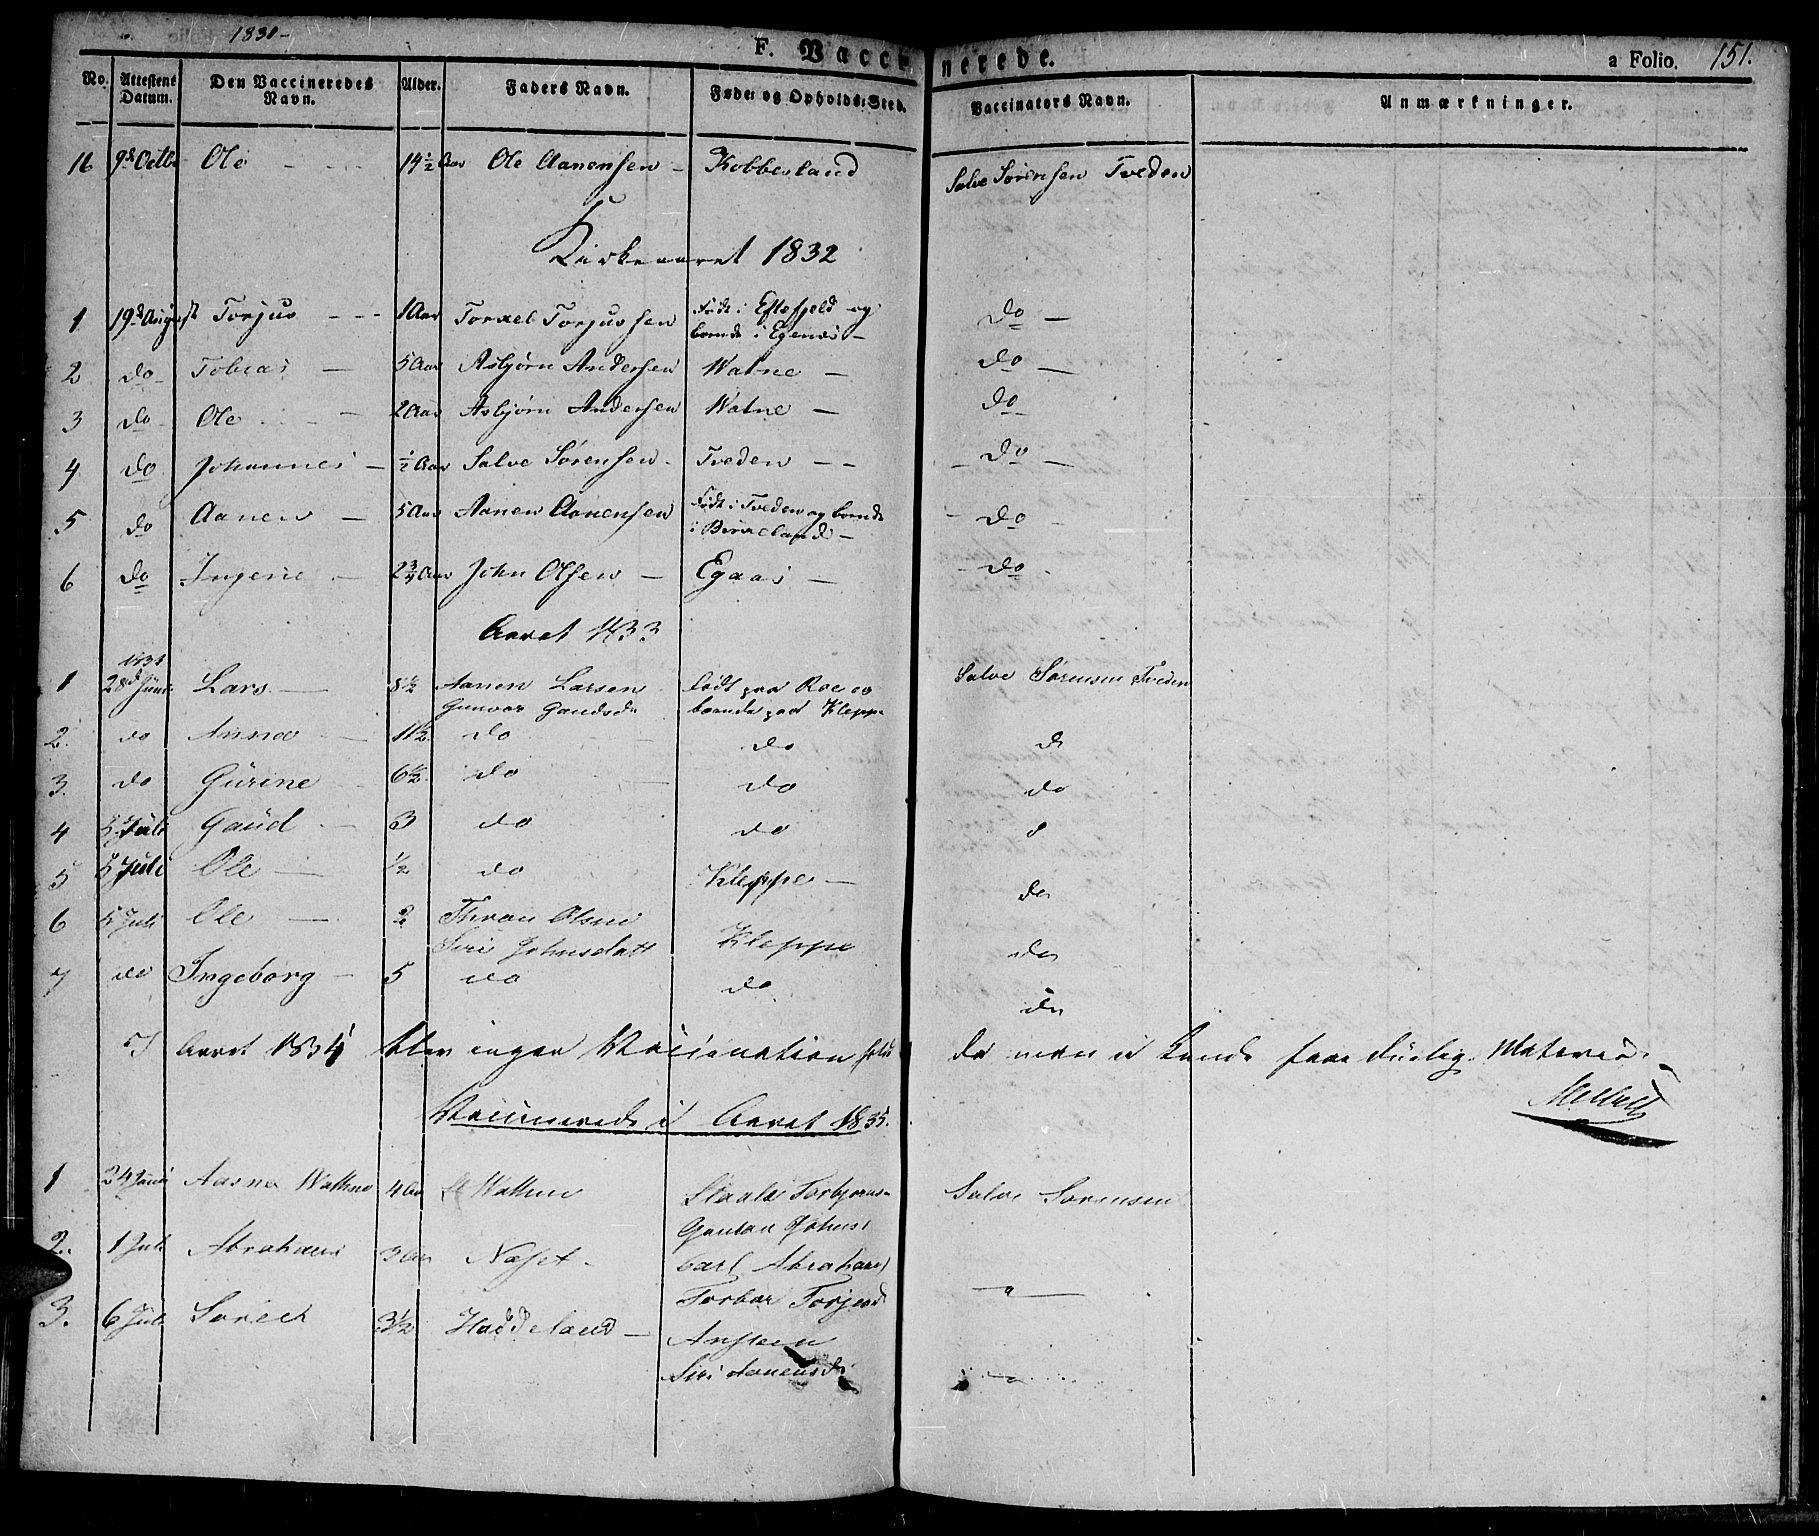 1831-
F. Vaccinerede. a Folio. 151.
No. Attestens Datum. Den Vaccineredes Navn. Alder. Faders Navn. Føde- og Opholds-Sted. Vaccinators Navn. Anmærkninger.
16 9d Octbr Ole - - - 14 1/2 Aar Ole Aanensen - Kobbesland Salve Sørensen Tveden
Kirkeaaret 1832
1 19d August Torjus - - - 1 Aar Torkel Torjussen Født i Eftefjeld og do -
boende i Egenes -
2 do Tobias - 5 Aar Asbjørn Andersen Watne - do -
3 do Ole - 2 Aar Asbjørn Andersen Watne - do -
4 do Johannes - 1/2 Aar Salve Sørensen - Tveden - - - do -
5 do Aanen - 5 Aar Aanen Aanensen Født i Tveden og boende - do -
i Birkeland -
6 do Ingerie - 2 3/4 Aar John Olsen - Egaas - - do -
Aaret 1833
1 28d Juni Lars - 8 1/2 Aanen Larsen født paa Roe og Salve Sørensen Tveden
Gunvor boende paa Kleppe
2. do Anna - 11 1/2 do do d
3. do Gurine 6 1/2 do do do
4 5 Juli Gaud - 3 do do
5 5 Juli Ole - 1/2 do Kleppe - do
6 5 Juli Ole - 2 Thron Olsen
Siri Johnsdatt Kleppe do
7 do Ingeborg - 5 do do do
I Aaret 1834 blev ingen Vaccination da man ei kunde faae duelig Materie.
Vaccinerede i Aaret 1835.
1 24 Juni Aasne Wathne 4 Aar Wathne Salve Sørensen
2. 1 Juli Abraham 3 Aar Næset - Carl Abrahams "
3. 6 Juli Sørech 3 1/2 Haddeland - Anstein "
Siri Aanensd